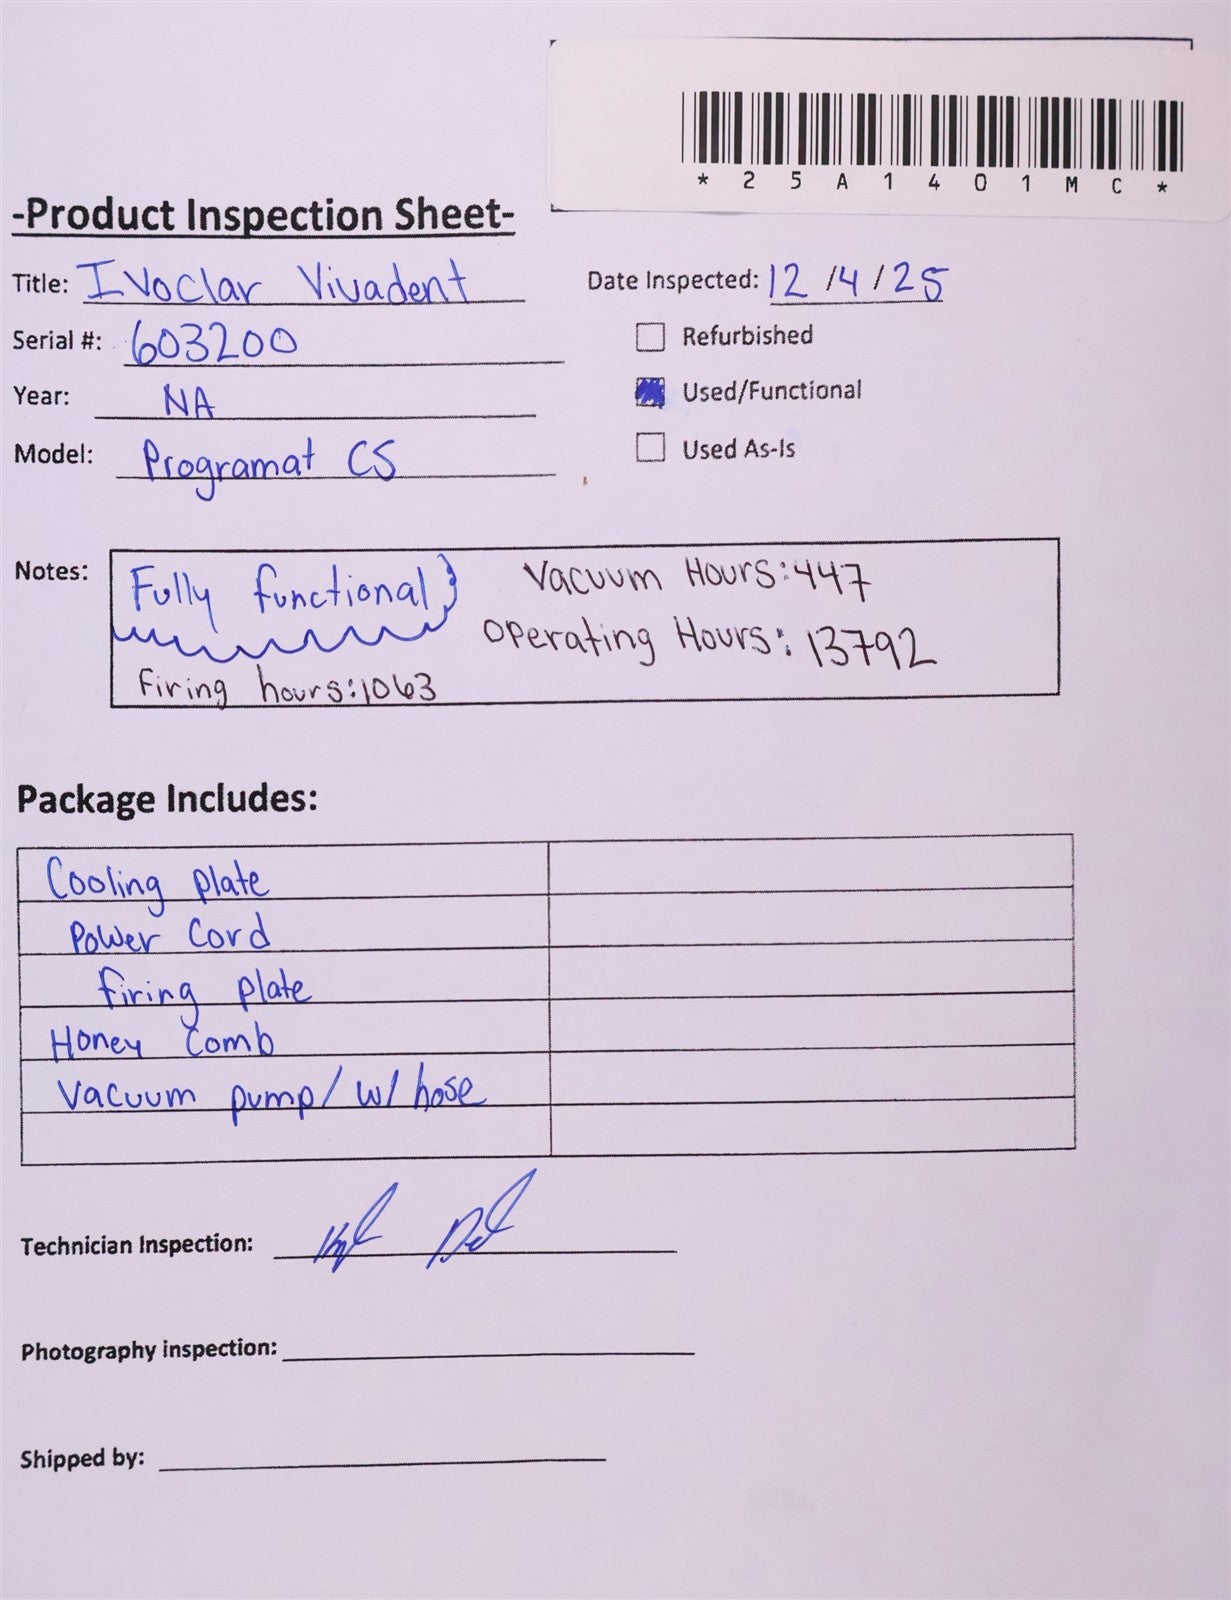 * 2 5 A 1 4 0 1 M C *
-Product Inspection Sheet-
Title: Ivoclar Vivadent
Date Inspected: 12 /4 / 25
Serial #: 603200
Refurbished
Year: NA
Used/Functional
Model: Programat CS
Used As-Is
Notes: Fully functional
Vacuum Hours: 447
Operating Hours: 13792
Firing hours: 1063
Package Includes:
Cooling plate
Power Cord
firing plate
Honey Comb
Vacuum pump/ w/ hose
Technician Inspection:
Photography inspection:
Shipped by: